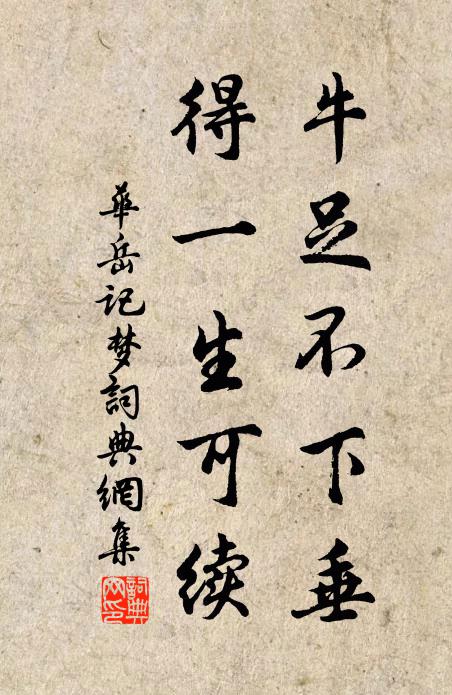 牛足不下垂
得一生可续
華岳记梦詞典網集
詞典
网印